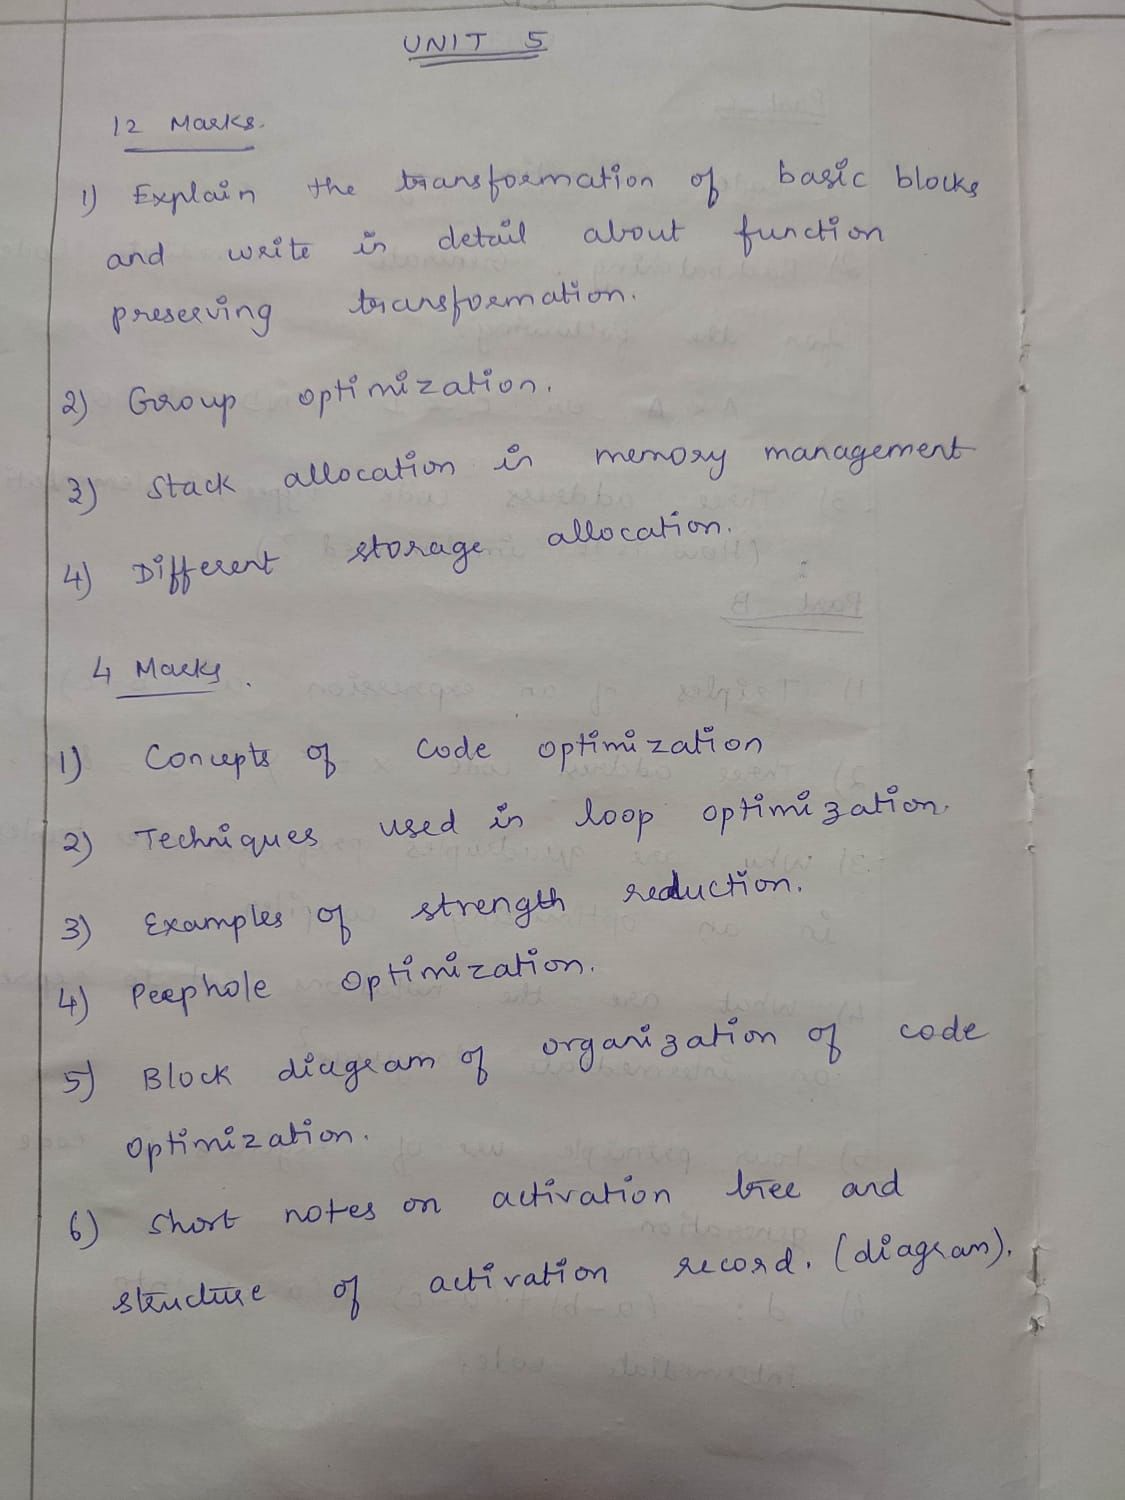 UNIT 5
12 Marks.
1) Explain the transformation of basic blocks
and write in detail about function
preserving transformation.
2) Group optimization.
3) Stack allocation in memory management
4) Different storage allocation.
4 Marks.
1) Concepts of code optimization
2) Techniques used in loop optimization.
3) Examples of strength reduction.
4) Peephole Optimization.
5) Block diagram of organization of code
Optimization.
6) Short notes on activation tree and
structure of activation record. (diagram).